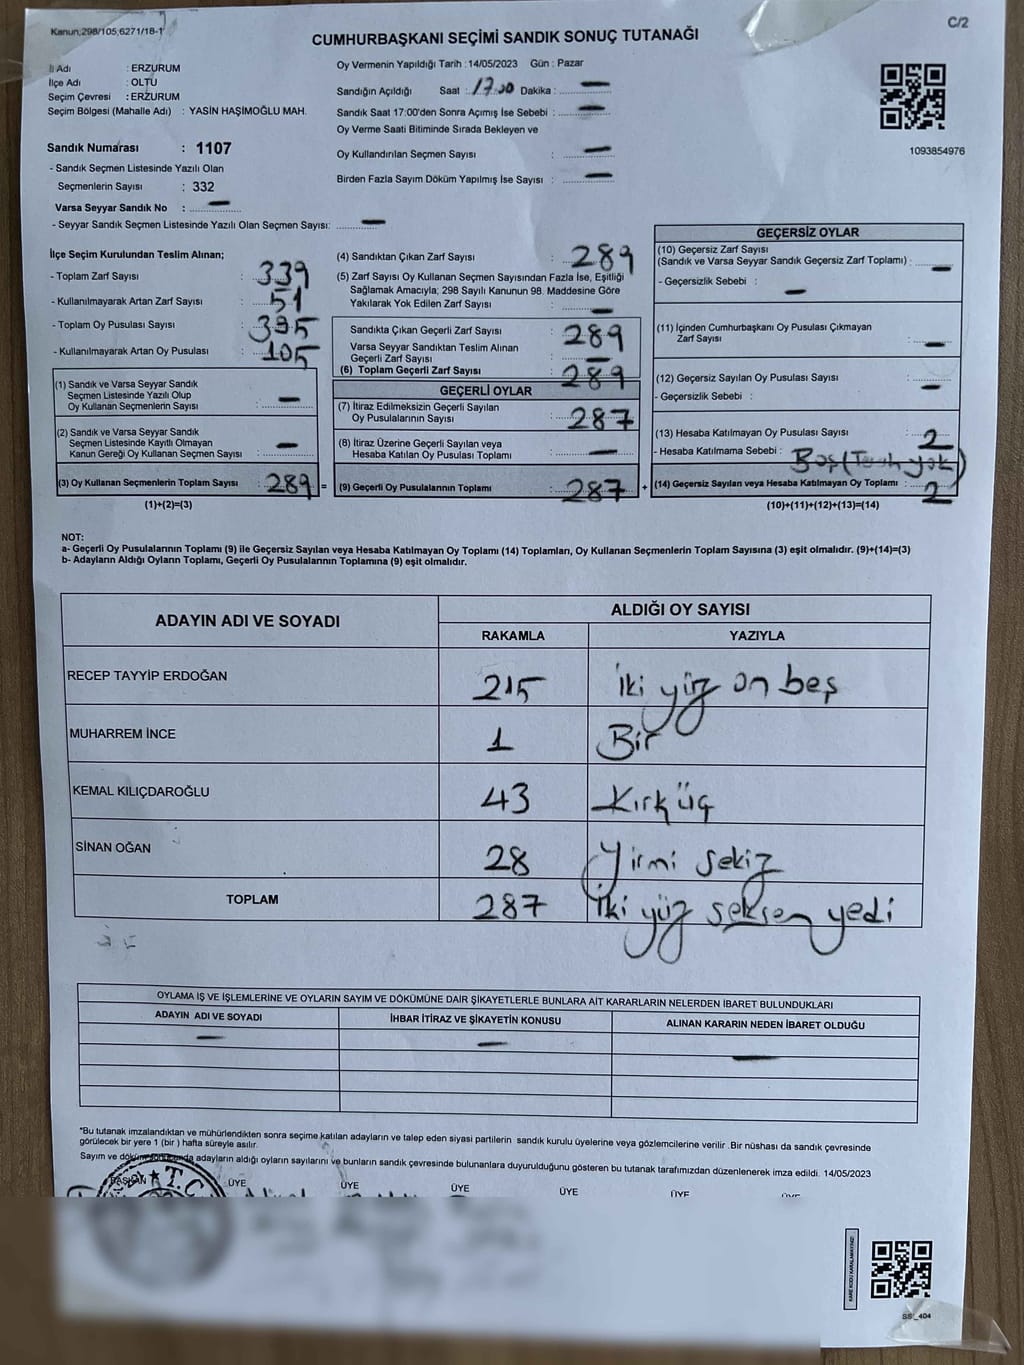 Kanun;298/105;6271/18-1
C/2
CUMHURBAŞKANI SEÇİMİ SANDIK SONUÇ TUTANAĞI
İl Adı : ERZURUM
İlçe Adı : OLTU
Seçim Çevresi : ERZURUM
Seçim Bölgesi (Mahalle Adı) : YASİN HAŞİMOĞLU MAH.
Sandık Numarası : 1107
- Sandık Seçmen Listesinde Yazılı Olan
Seçmenlerin Sayısı : 332
Varsa Seyyar Sandık No : —
- Seyyar Sandık Seçmen Listesinde Yazılı Olan Seçmen Sayısı: —
Oy Vermenin Yapıldığı Tarih : 14/05/2023 Gün : Pazar
Sandığın Açıldığı Saat : 17.00 Dakika : —
Sandık Saat 17:00'den Sonra Açımış İse Sebebi : —
Oy Verme Saati Bitiminde Sırada Bekleyen ve
Oy Kullandırılan Seçmen Sayısı : —
Birden Fazla Sayım Döküm Yapılmış İse Sayısı : —
1093854976
İlçe Seçim Kurulundan Teslim Alınan;
- Toplam Zarf Sayısı : 339
- Kullanılmayarak Artan Zarf Sayısı : 51
- Toplam Oy Pusulası Sayısı : 395
- Kullanılmayarak Artan Oy Pusulası : 105
(1) Sandık ve Varsa Seyyar Sandık
Seçmen Listesinde Yazılı Olup
Oy Kullanan Seçmenlerin Sayısı : —
(2) Sandık ve Varsa Seyyar Sandık
Seçmen Listesinde Kayıtlı Olmayan
Kanun Gereği Oy Kullanan Seçmen Sayısı : —
(3) Oy Kullanan Seçmenlerin Toplam Sayısı : 289 =
(1)+(2)=(3)
(4) Sandıktan Çıkan Zarf Sayısı : 289
(5) Zarf Sayısı Oy Kullanan Seçmen Sayısından Fazla İse, Eşitliği
Sağlamak Amacıyla; 298 Sayılı Kanunun 98. Maddesine Göre
Yakılarak Yok Edilen Zarf Sayısı : —
Sandıkta Çıkan Geçerli Zarf Sayısı : 289
Varsa Seyyar Sandıktan Teslim Alınan
Geçerli Zarf Sayısı : —
(6) Toplam Geçerli Zarf Sayısı : 289
GEÇERLİ OYLAR
(7) İtiraz Edilmeksizin Geçerli Sayılan
Oy Pusulalarının Sayısı : 287
(8) İtiraz Üzerine Geçerli Sayılan veya
Hesaba Katılan Oy Pusulası Toplamı : —
(9) Geçerli Oy Pusulalarının Toplamı : 287 +
GEÇERSİZ OYLAR
(10) Geçersiz Zarf Sayısı
(Sandık ve Varsa Seyyar Sandık Geçersiz Zarf Toplamı) : —
- Geçersizlik Sebebi : —
(11) İçinden Cumhurbaşkanı Oy Pusulası Çıkmayan
Zarf Sayısı : —
(12) Geçersiz Sayılan Oy Pusulası Sayısı : —
- Geçersizlik Sebebi :
(13) Hesaba Katılmayan Oy Pusulası Sayısı : 2
- Hesaba Katılmama Sebebi : Boş ( yok)
(14) Geçersiz Sayılan veya Hesaba Katılmayan Oy Toplamı : 2
(10)+(11)+(12)+(13)=(14)
NOT:
a- Geçerli Oy Pusulalarının Toplamı (9) ile Geçersiz Sayılan veya Hesaba Katılmayan Oy Toplamı (14) Toplamları, Oy Kullanan Seçmenlerin Toplam Sayısına (3) eşit olmalıdır. (9)+(14)=(3)
b- Adayların Aldığı Oyların Toplamı, Geçerli Oy Pusulalarının Toplamına (9) eşit olmalıdır.
ADAYIN ADI VE SOYADI
ALDIĞI OY SAYISI
RAKAMLA YAZIYLA
RECEP TAYYİP ERDOĞAN 215 iki yüz on beş
MUHARREM İNCE 1 Bir
KEMAL KILIÇDAROĞLU 43 Kırk üç
SİNAN OĞAN 28 Yirmi sekiz
TOPLAM 287 iki yüz seksen yedi
OYLAMA İŞ VE İŞLEMLERİNE VE OYLARIN SAYIM VE DÖKÜMÜNE DAİR ŞİKAYETLERLE BUNLARA AİT KARARLARIN NELERDEN İBARET BULUNDUKLARI
ADAYIN ADI VE SOYADI İHBAR İTİRAZ VE ŞİKAYETİN KONUSU ALINAN KARARIN NEDEN İBARET OLDUĞU
— — —
*Bu tutanak imzalandıktan ve mühürlendikten sonra seçime katılan adayların ve talep eden siyasi partilerin sandık kurulu üyelerine veya gözlemcilerine verilir .Bir nüshası da sandık çevresinde
görülecek bir yere 1 (bir ) hafta süreyle asılır.
Sayım ve döküm sonucunda adayların aldığı oyların sayılarını ve bunların sandık çevresinde bulunanlara duyurulduğunu gösteren bu tutanak tarafımızdan düzenlenerek imza edildi. 14/05/2023
BAŞKAN ÜYE ÜYE ÜYE ÜYE ÜYE ÜYE
T.C.
KARE KODU KARALAMAYINIZ!